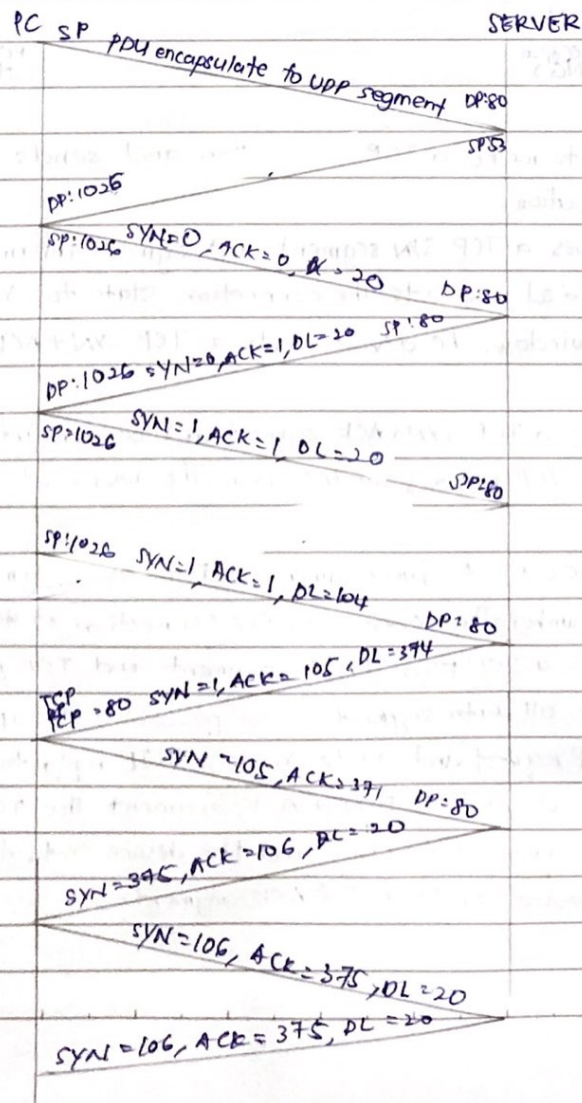 PC SERVER
SP PDU encapsulate to UDP segment DP:80
SP53
DP:1026
SP:1026 SYN=0, ACK=0, DL=20 DP:80
SP:80
DP:1026 SYN=0, ACK=1, DL=20
SP=1026 SYN=1, ACK=1, DL=20
DP:80
SP:1026 SYN=1, ACK=1, DL=104
DP:80
TCP
=80 SYN=1, ACK=105, DL=374
SYN=105, ACK=371 DP:80
SYN=375, ACK=106, DL=20
SYN=106, ACK=375, DL=20
SYN=106, ACK=375, DL=20